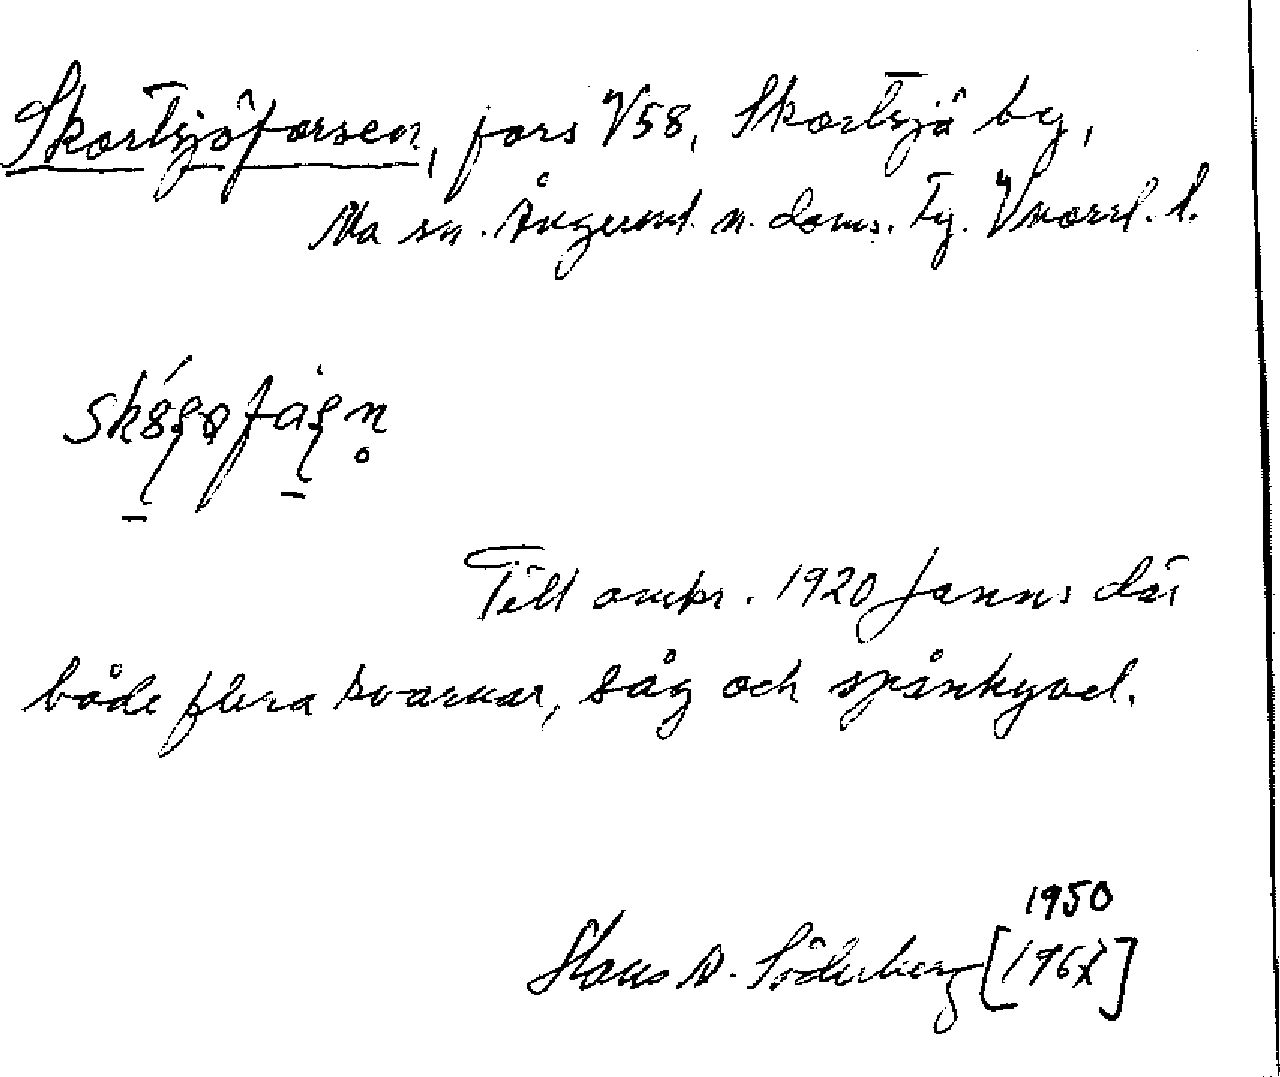 Skortsjöforsen, fors V58, Skortsjö by,
Ma sn. Ångerml. n. doms. Tg. Vnorrl. l.
Till omkr. 1920 fanns där
både flera kvarnar, såg och spånhyvel.
1950
Hans A. Söderberg [1967]